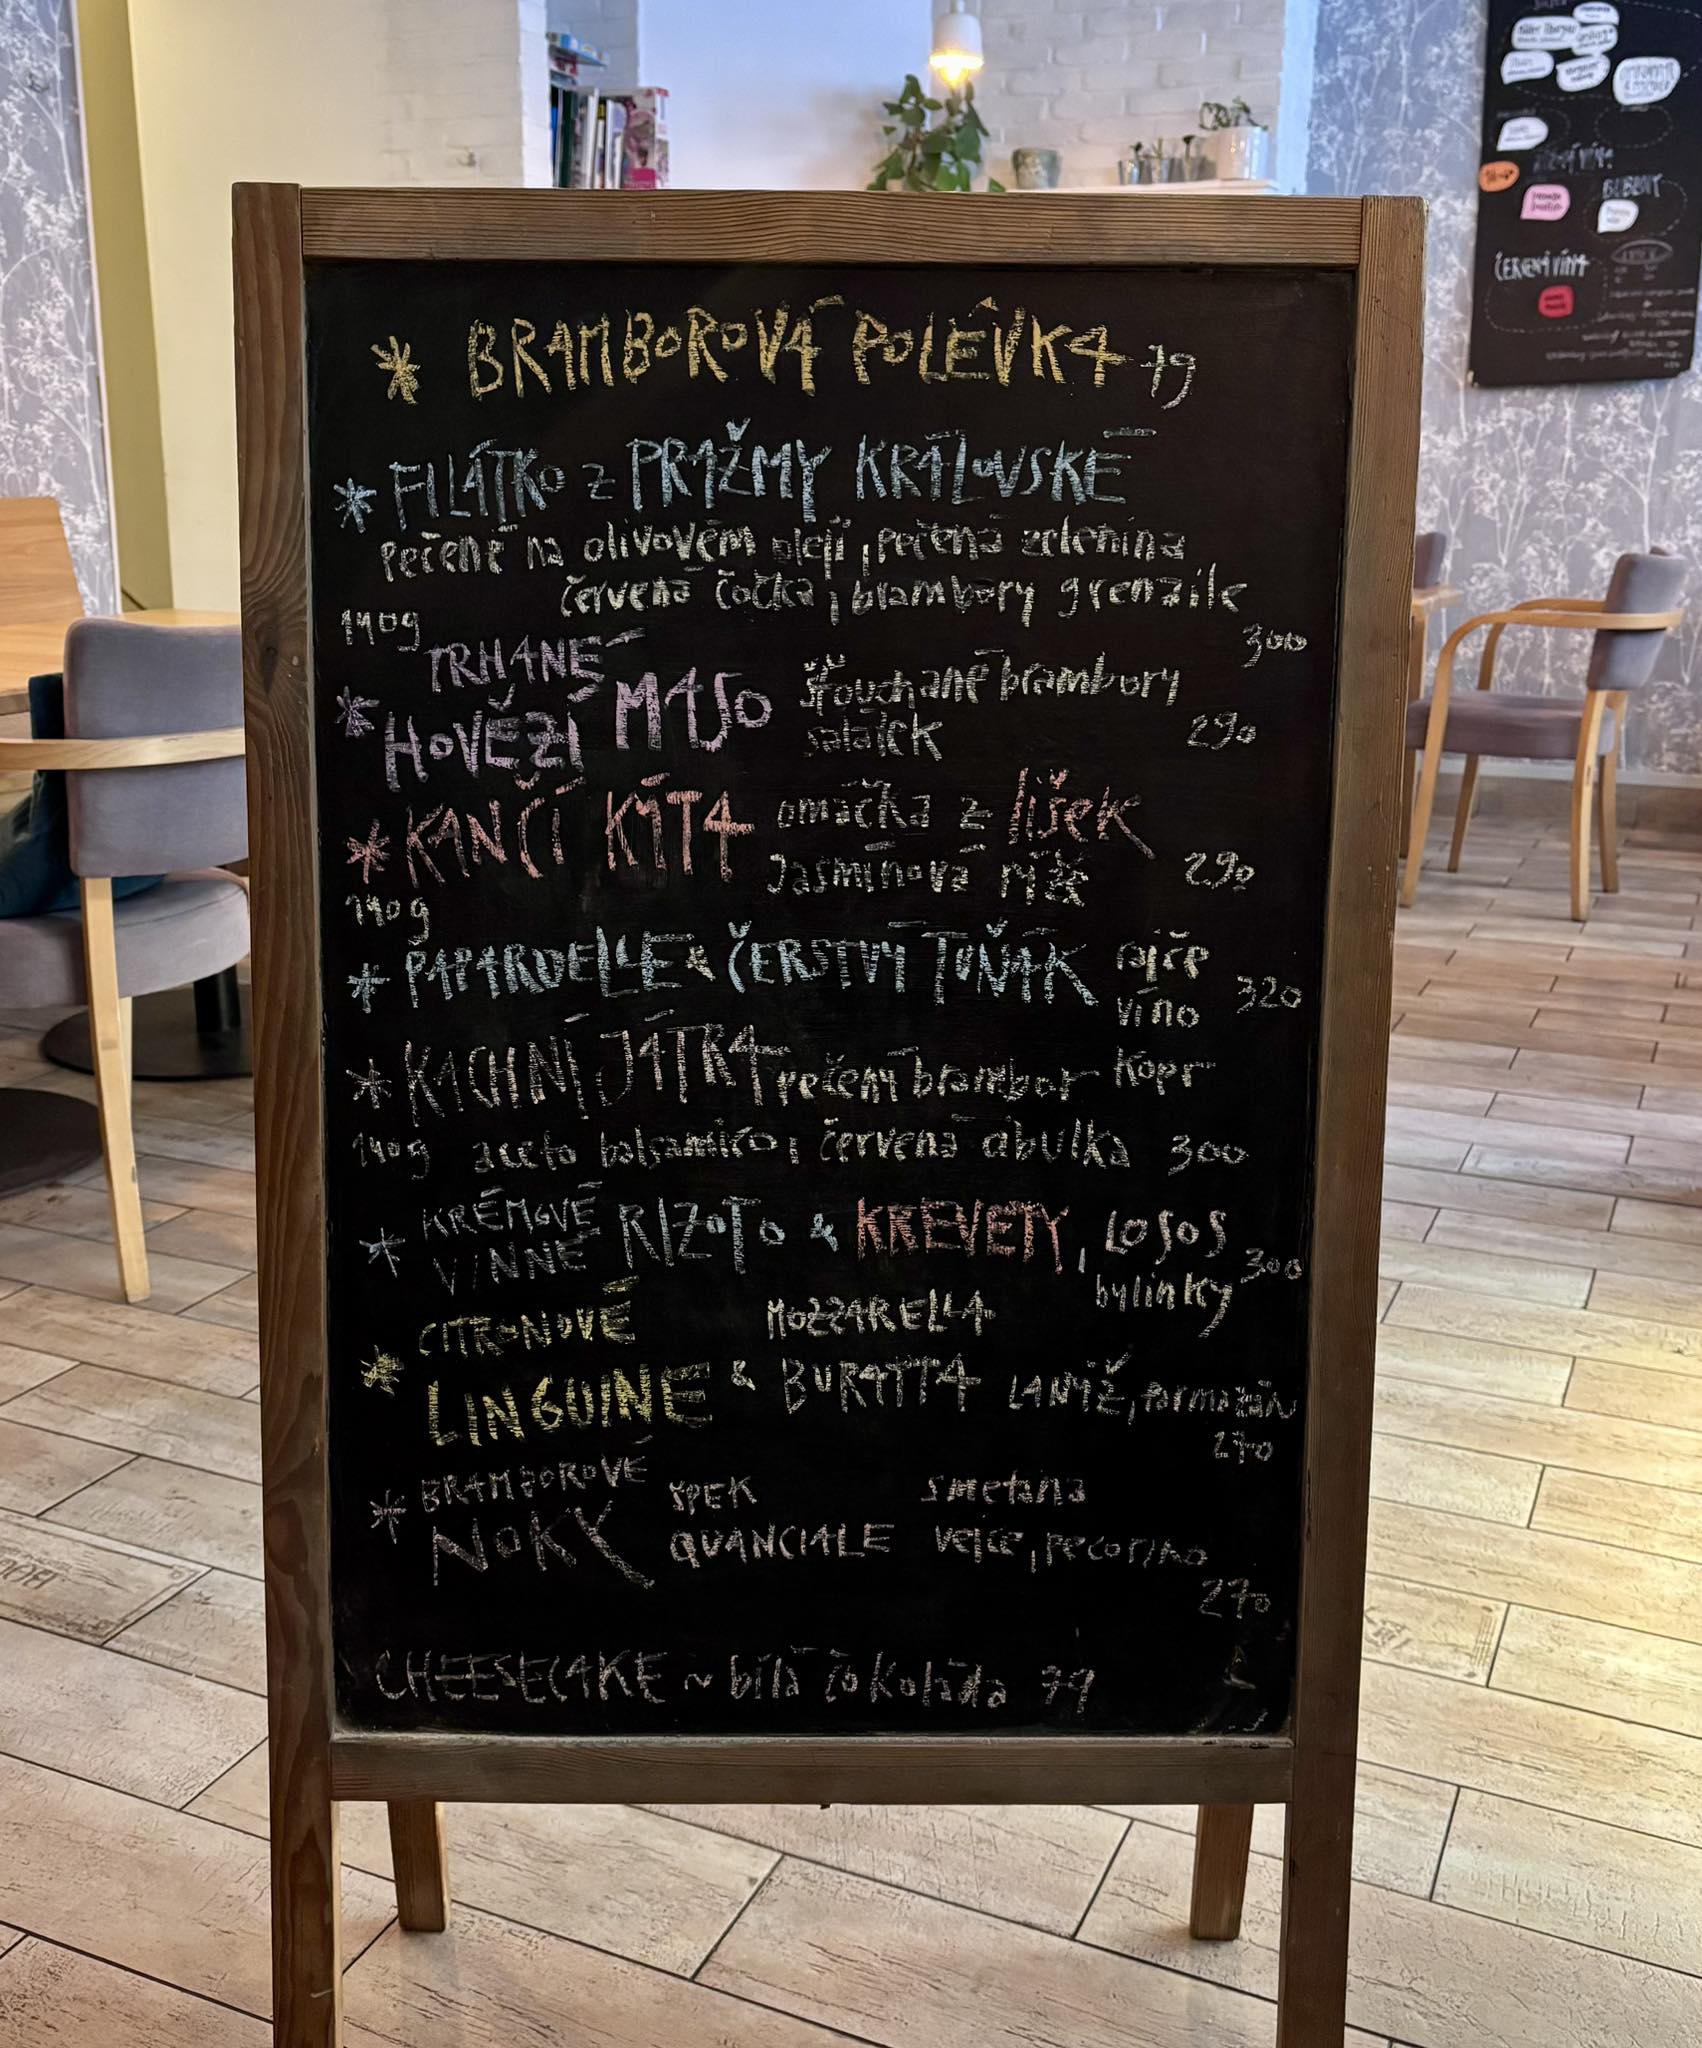 * BRAMBOROVÁ POLÉVKA 79
* FILÁTKO z PRAŽMY KRÁLOVSKÉ
pečené na olivovém oleji, pečená zelenina
červená čočka, brambory grenaile
140g 300
TRHANÉ
* HOVĚZÍ MASO šťouchané brambory
salátek 290
* KANČÍ KÝTA omáčka z lišek
Jasmínová rýže 290
140g
* PAPARDELLE & ČERSTVÝ TUŇÁK rajče
víno 320
* KACHNÍ JÁTRA pečený brambor kopr
140g aceto balsamico, červená cibulka 300
* KRÉMOVÉ
VINNÉ RIZOTO & KREVETY, LOSOS
bylinky 300
CITRONOVÉ MOZZARELLA
* LINGUINE & BURATTA LANÝŽ, parmazán
270
* BRAMBOROVÉ ŠPEK smetana
NOKY QUANCIALE vejce, pecorino
270
CHEESECAKE ~ bílá čokoláda 79
ČERVENÁ VÍNA
BUBBLY